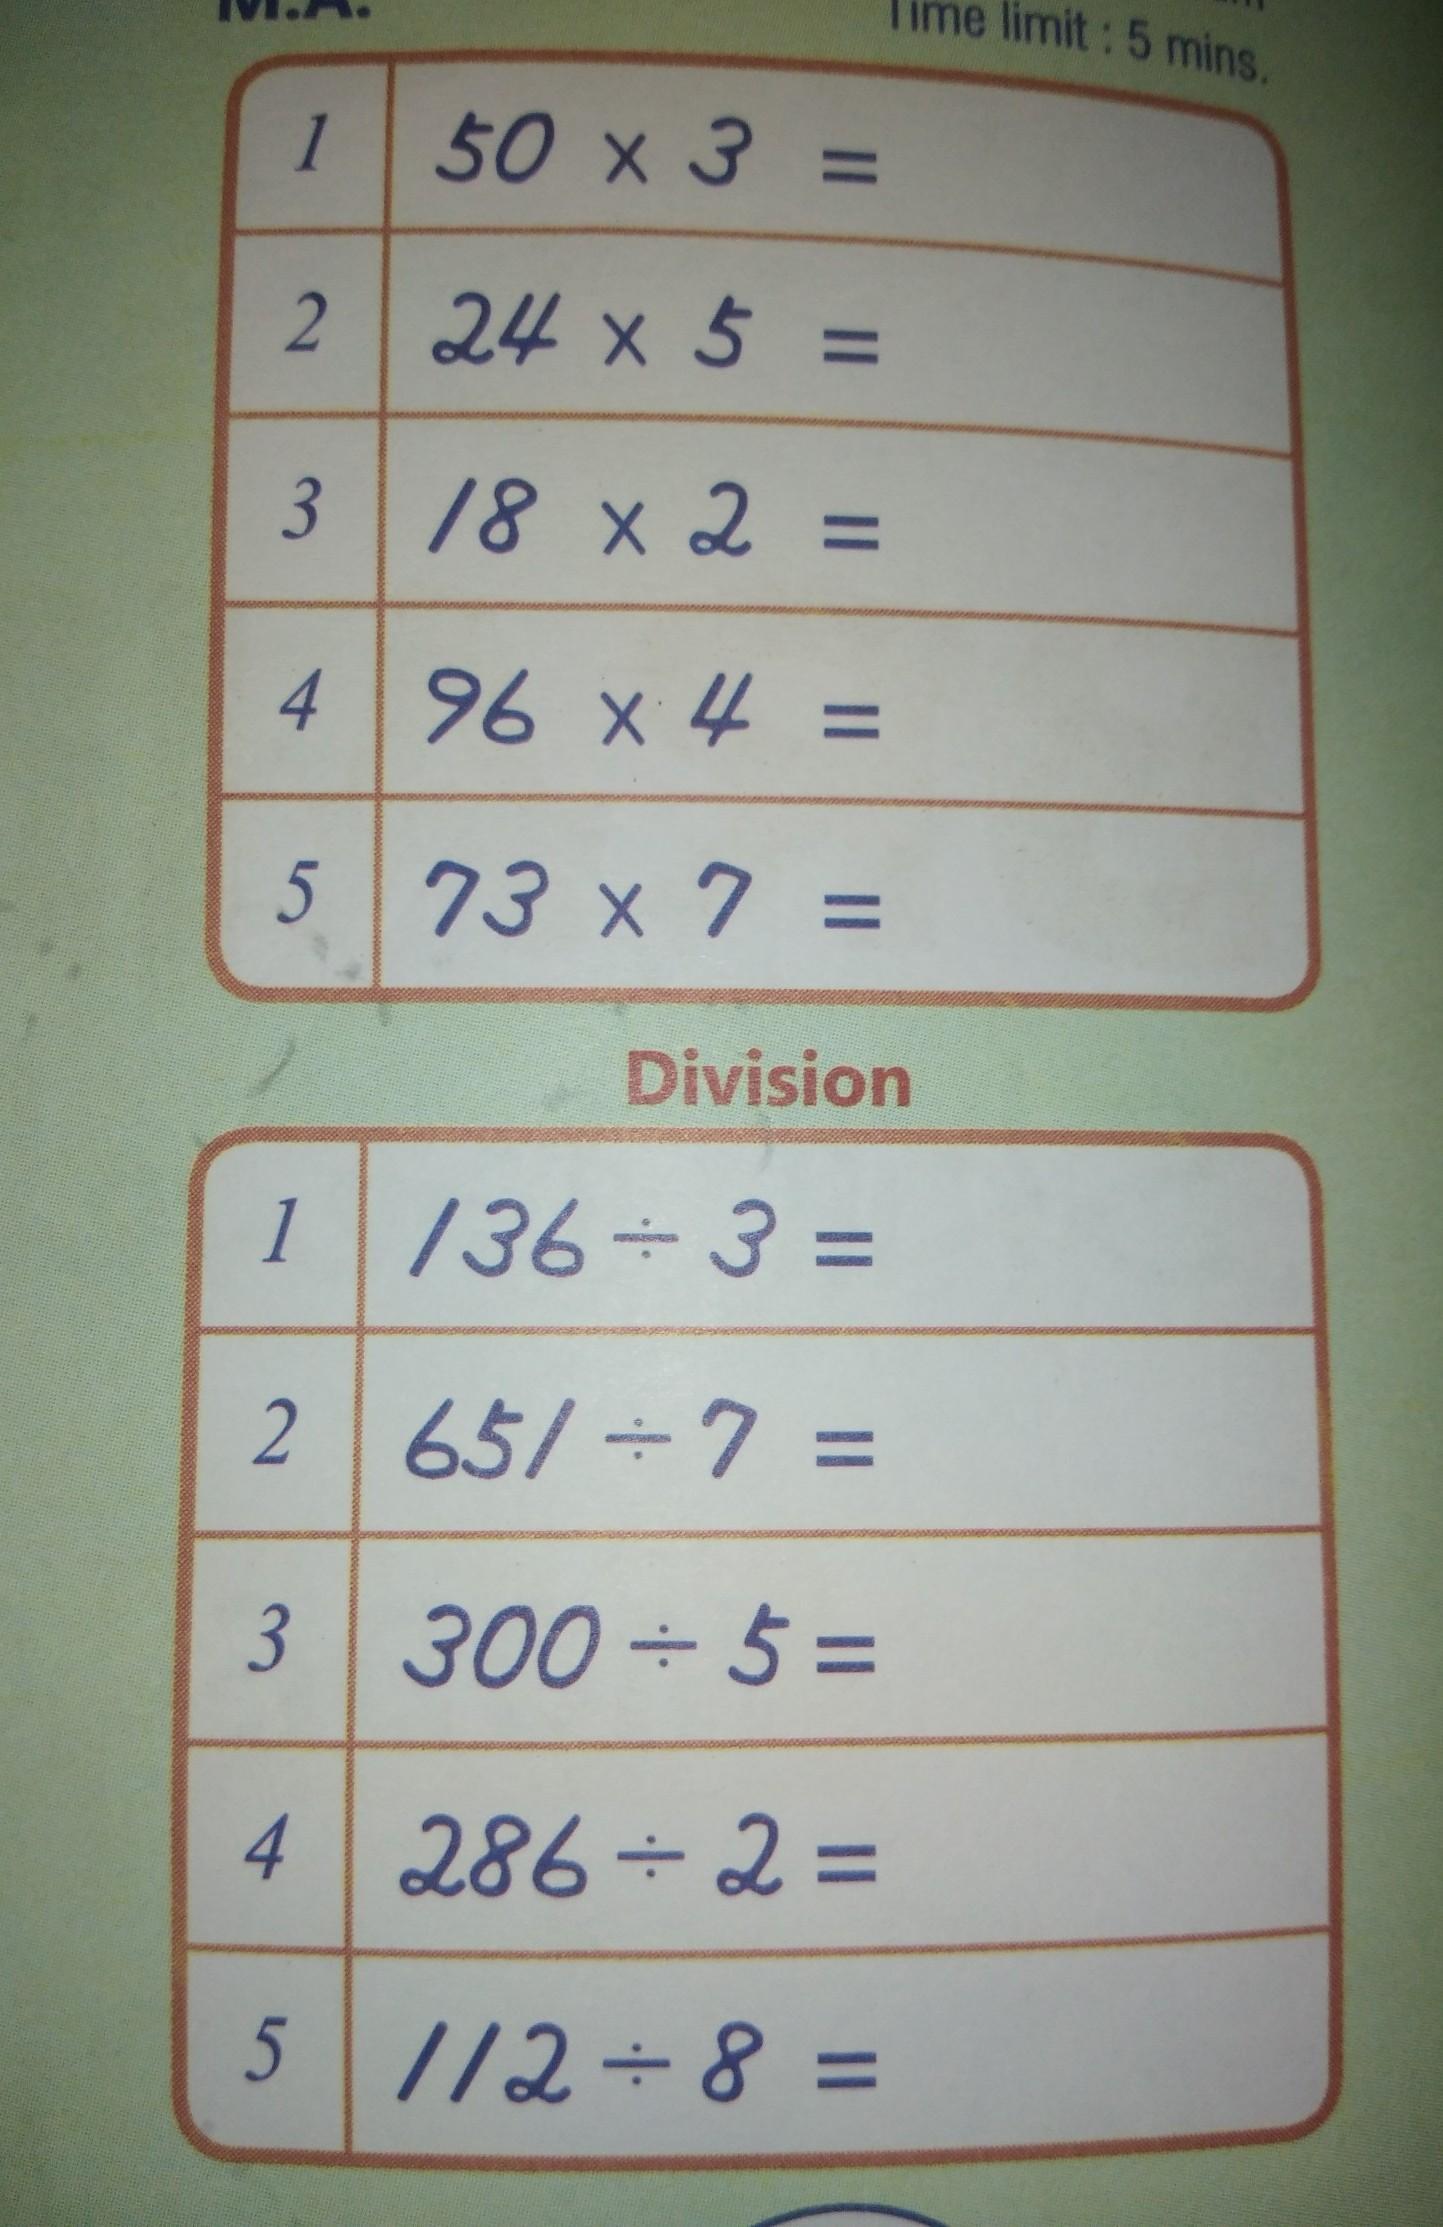 M.A.
Time limit : 5 mins.
1 50 × 3 =
2 24 × 5 =
3 18 × 2 =
4 96 × 4 =
5 73 × 7 =
Division
1 136 ÷ 3 =
2 651 ÷ 7 =
3 300 ÷ 5 =
4 286 ÷ 2 =
5 112 ÷ 8 =